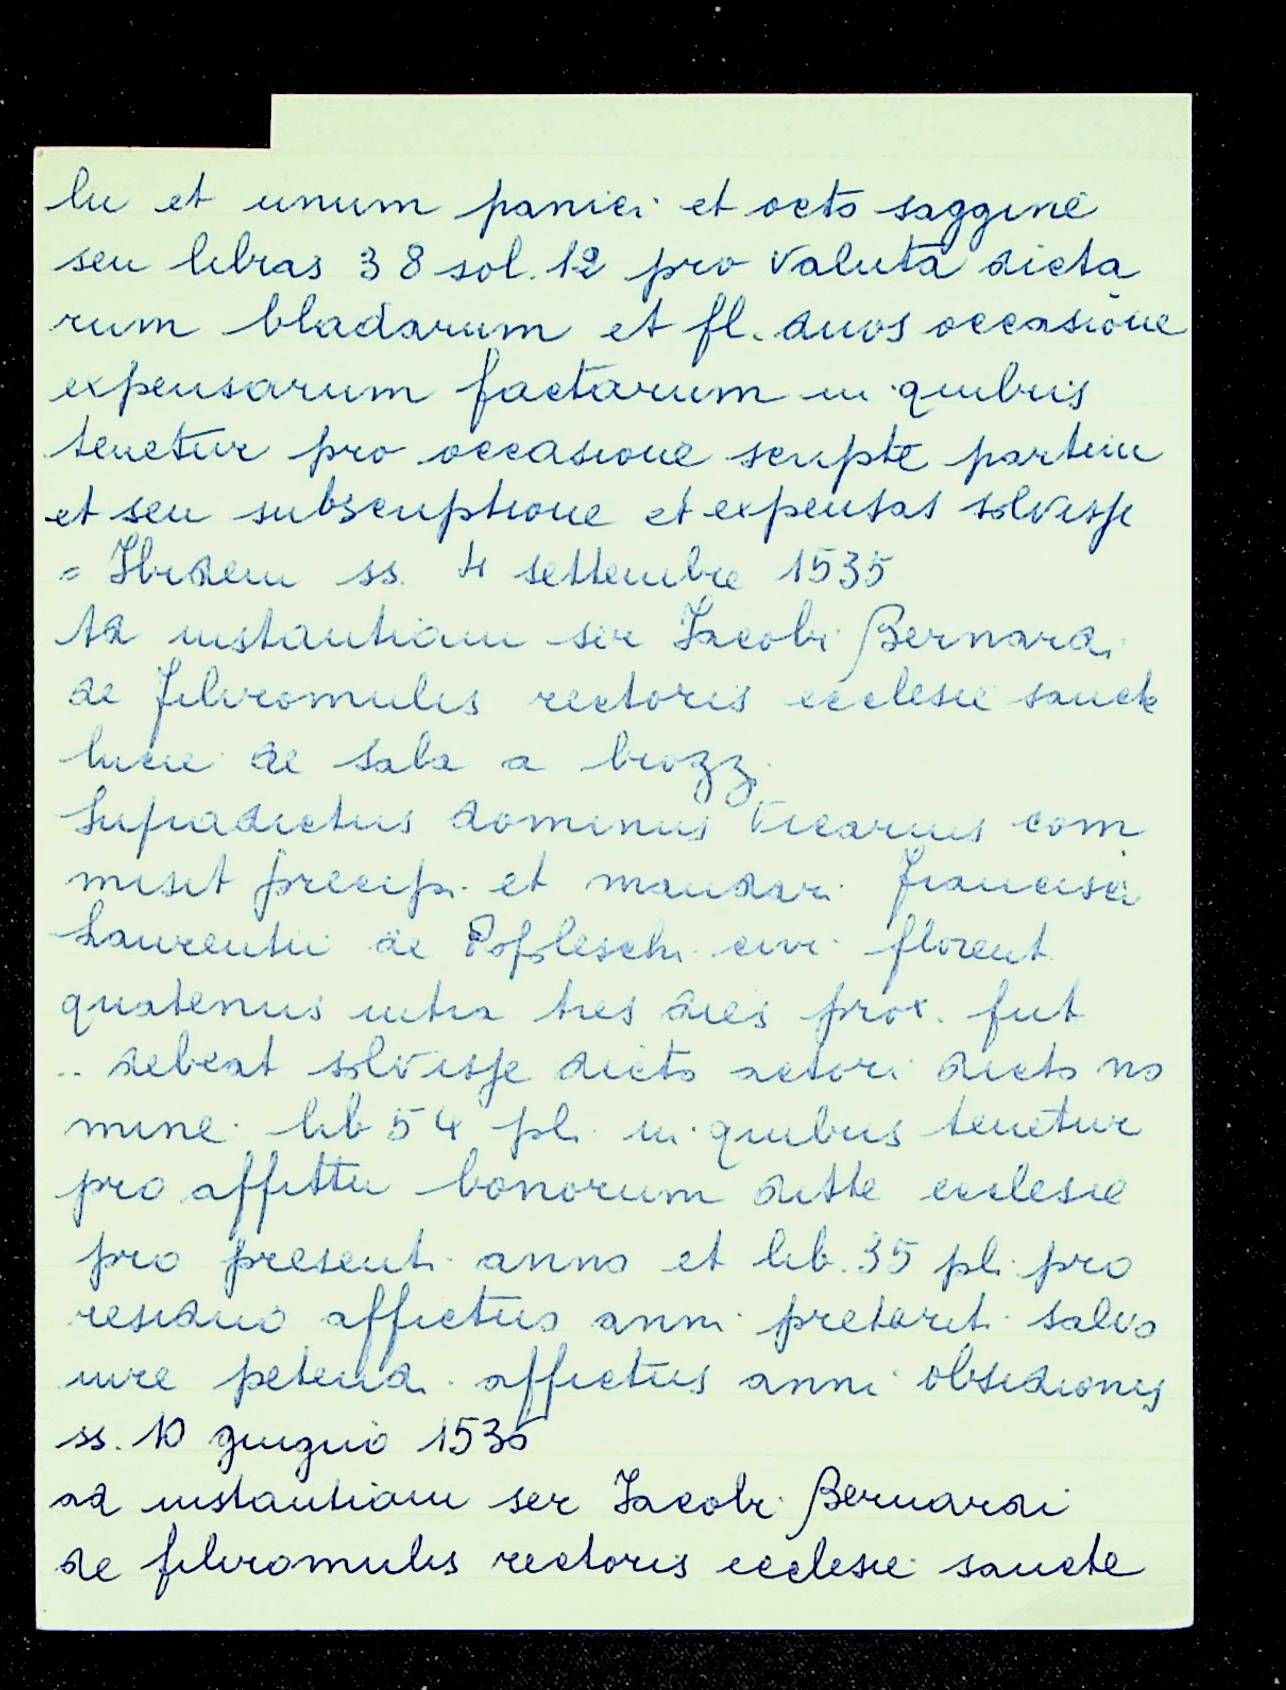 lii et unum panici et octo saggine
seu libras 38 sol. 12 pro valuta dicta
rum bladarum et fl. duos occasione
expensarum factarum in quibus
tenetur pro occasione scripte partim
et seu subscriptione et expensas solvisse
= Ibidem ss. 4 settembre 1535
Ad instantiam ser Jacobi Bernardi
de filiromulis rectoris ecclesie sancte
lucie de Sala a brozzi
Supradictus dominus Vicarius com
misit precipi et mandari francisci
Laurentii de Popleschi civi florent
quatenus intra tres dies prox. fut
.. debeat solvisse dicto actori dicto no
mine lib 54 pli. in quibus tenetur
pro affittu bonorum ditte ecclesie
pro presenti anno et lib. 35 pli pro
residuo affictus anni preteriti salvo
iure petendi affictus anni obsidionis
ss. 10 giugno 1536
ad instantiam ser Jacobi Bernardi
de filiromulis rectoris ecclesie sancte